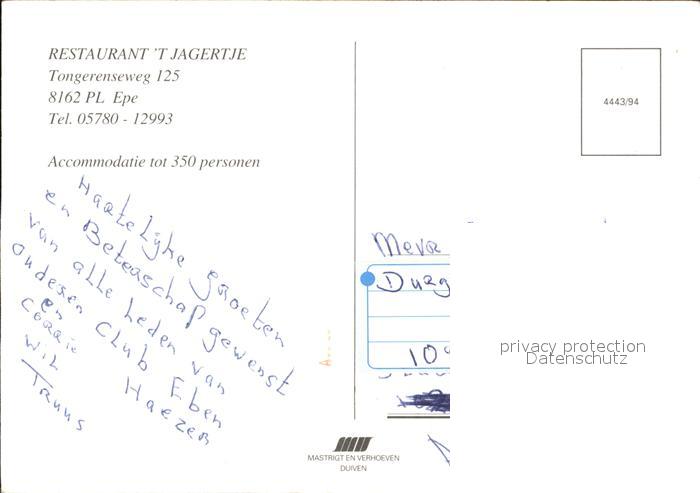 RESTAURANT 'T JAGERTJE
Tongerenseweg 125
8162 PL Epe
Tel. 05780 - 12993
Accommodatie tot 350 personen
Hartelijke groeten
en Beterschap gewenst
van alle leden van
ouderen Club Eben
Haezer
en
Corrie
Wil
Truus
4443/94
Meva
10
privacy protection
Datenschutz
MASTRIGT EN VERHOEVEN
DUIVEN